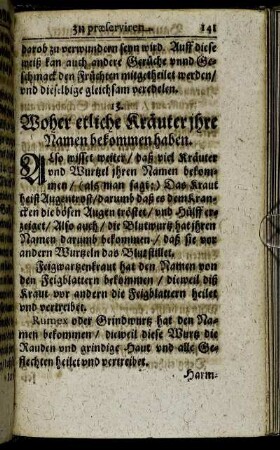 zu præserviren. 141
darob zu verwundern seyn wird. Auff diese
weiß kan auch andere Gerüche vnnd Ge-
schmack den Früchten mitgetheilet werden/
vnd dieselbige gleichsam veredelen.
3.
Woher etliche Kräuter jhre
Namen bekommen haben.
Also wisset weiter/ daß viel Kräuter
vnd Wurtzel jhren Namen bekom-
men/ (als man sagt:) Das Kraut
heist Augentrost/ darumb daß es dem Kran-
cken die bösen Augen tröstet/ vnd Hülff er-
zeiget/ Also auch/ die Blutwurtz hat jhren
Namen darumb bekommen/ daß sie vor
andern Wurtzeln das Blut stillet.
Feigwartzenkraut hat den Namen von
den Feigblattern bekommen/ dieweil diß
Kraut vor andern die Feigblattern heilet
vnd vertreibet.
Rumex oder Grindwurtz hat den Na-
men bekommen/ dieweil diese Wurtz die
Rauden vnd grindige Haut vnd alle Ge-
flechten heilet vnd vertreibet.
Harm-